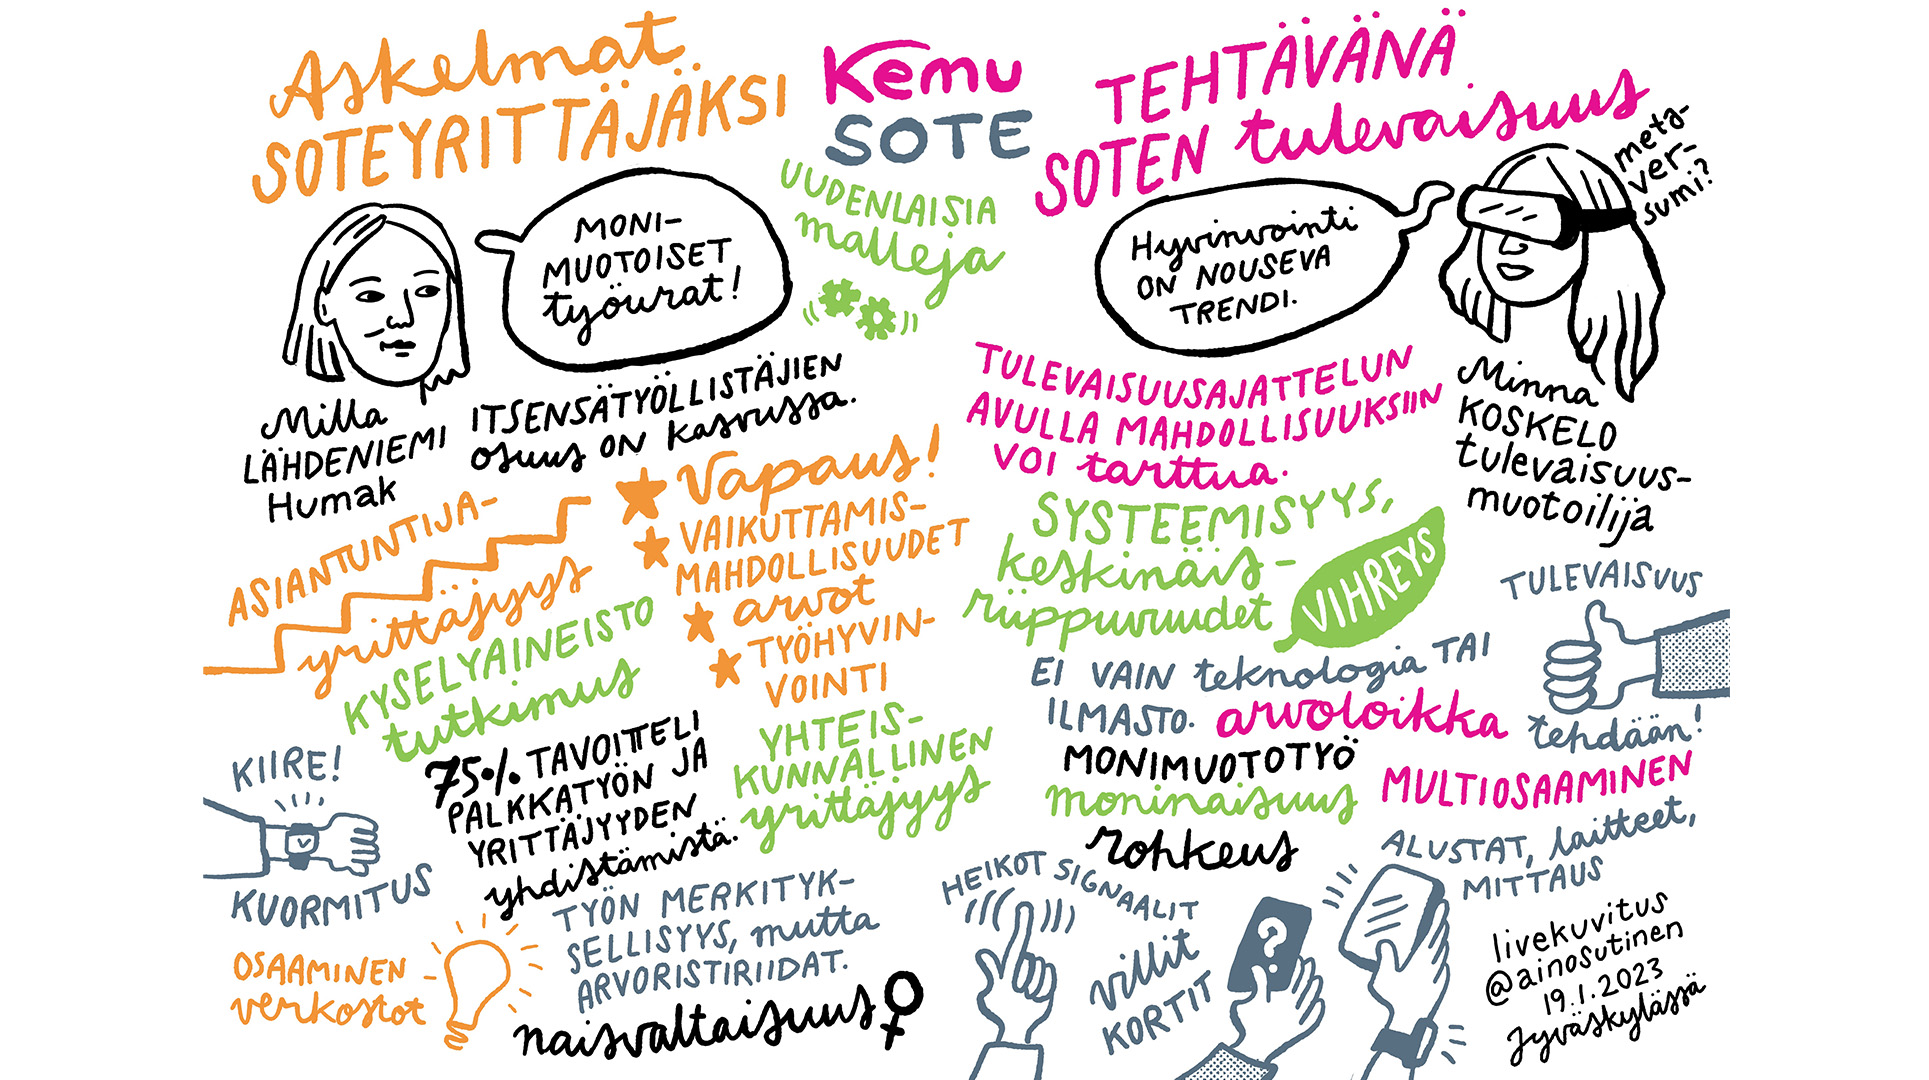 Askelmat
SOTEYRITTÄJÄKSI
Kemu
SOTE
TEHTÄVÄNÄ
SOTEN tulevaisuus
UUDENLAISIA
malleja
MONI-
MUOTOISET
työurat!
Milla
LÄHDENIEMI
Humak
ITSENSÄTYÖLLISTÄJIEN
osuus ON kasvussa.
ASIANTUNTIJA-
yrittäjyys
Vapaus!
VAIKUTTAMIS-
MAHDOLLISUUDET
arvot
TYÖHYVIN-
VOINTI
KYSELYAINEISTO
tutkimus
75% TAVOITTELI
PALKKATYÖN JA
YRITTÄJYYDEN
yhdistämistä.
YHTEIS-
KUNNALLINEN
yrittäjyys
KIIRE!
KUORMITUS
OSAAMINEN
verkostot
TYÖN MERKITYK-
SELLISYYS, mutta
ARVORISTIRIIDAT.
naisvaltaisuus
Hyvinvointi
ON NOUSEVA
TRENDI.
meta-
ver-
sumi?
Minna
KOSKELO
tulevaisuus-
muotoilija
TULEVAISUUSAJATTELUN
AVULLA MAHDOLLISUUKSIIN
VOI tarttua.
SYSTEEMISYYS,
keskinäis-
riippuvuudet
VIHREYS
TULEVAISUUS
tehdään!
EI VAIN teknologia TAI
ILMASTO. arvoloikka
MONIMUOTOTYÖ
moninaisuus
rohkeus
MULTIOSAAMINEN
ALUSTAT, laitteet,
MITTAUS
HEIKOT SIGNAALIT
villit
KORTIT
?
livekuvitus
@ainosutinen
19.1.2023
Jyväskylässä